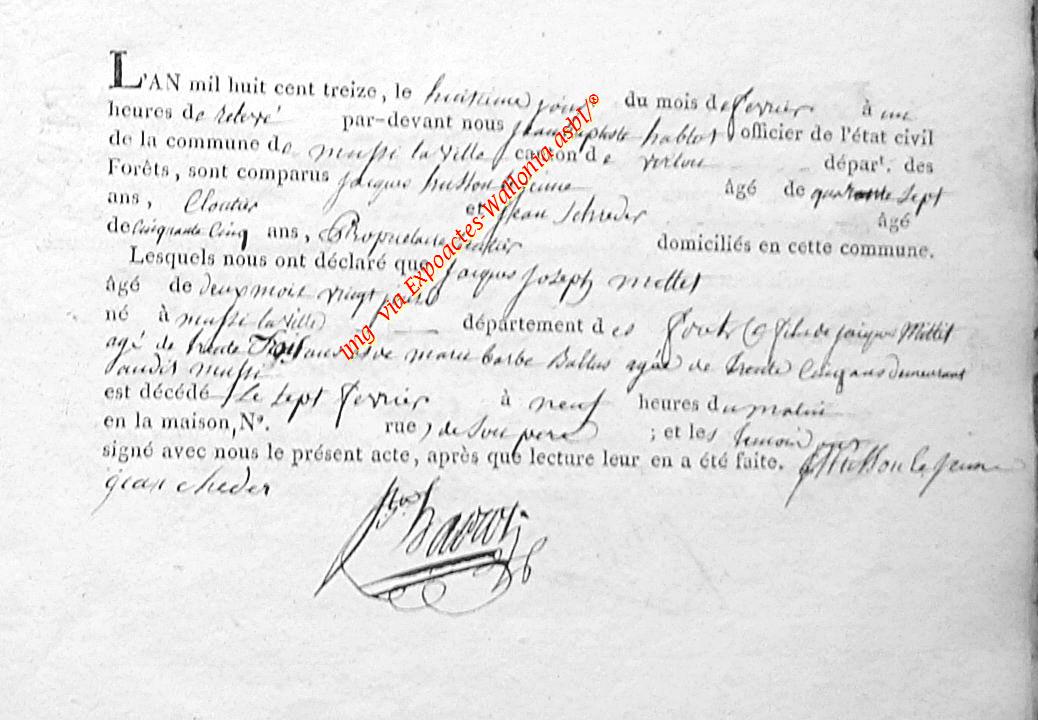 L'AN mil huit cent treize, le huitieme jour du mois de fevrier à un
heures de relevé par-devant nous jean baptiste hablot officier de l'état civil
de la commune de mussi la ville canton de virton départ. des
Forêts, sont comparus jacques husson jeune âgé de quarente sept
ans, Cloutier et jean Schreder âgé
de Cinquante Cinq ans, Propriétaire domiciliés en cette commune.
Lesquels nous ont déclaré que jacques joseph mettet
âgé de deux mois vingt jours
né à mussi la ville département des foret fils de jacques Mettet
agé de trente Trois ans et de marie barbe Ballus agée de trente Cinq ans demeurant
audit mussi
est décédé le sept fevrier à neuf heures du matin
en la maison, N°. rue, de Son pere ; et les temoin ont
signé avec nous le présent acte, après que lecture leur en a été faite. Husson le jeune
jean cheder
img via Expoactes-Wallonia asbl/®